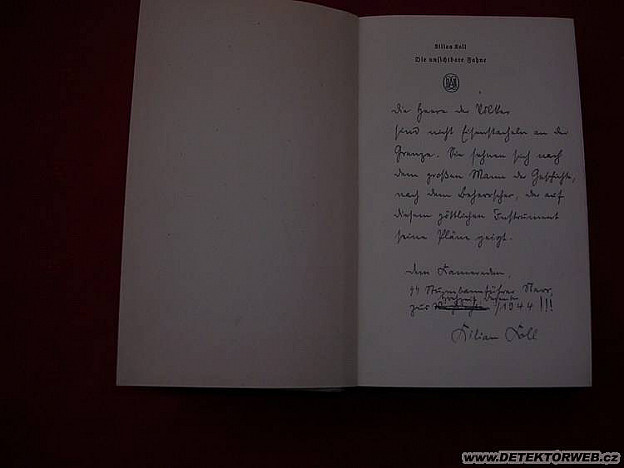 Kilian Koll
Die unsichtbare Fahne
die Heere der Völker
sind nicht Eisenstacheln an der
Grenze. Sie sehnen sich nach
dem großen Mann der Geschichte,
nach dem Beherrscher, der auf
diesem göttlichen Instrument
seine Pläne zeigt.
dem Kameraden,
SS Sturmbannführer
zur 1944 !!!
Kilian Koll
www.DETEKTORWEB.cz